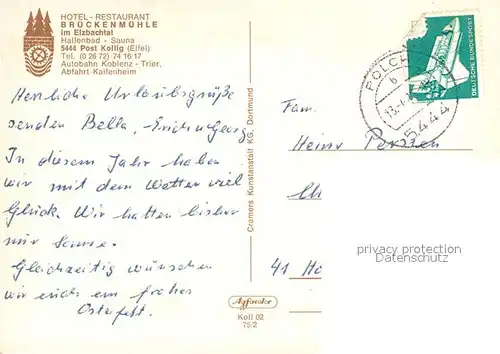 HOTEL - RESTAURANT
BRÜCKENMÜHLE
im Elzbachtal
Hallenbad - Sauna
5444 Post Kollig (Eifel)
Tel. (0 26 72) 74 16/17
Autobahn Koblenz - Trier,
Abfahrt Kaifenheim
Herrliche Urlaubsgrüße
senden Bella, Erich u. Georg
In diesem Jahr haben
wir mit dem Wetter viel
Glück. Wir hatten bisher
nur Sonne.
Gleichzeitig wünschen
wir euch ein frohes
Osterfest.
Cramers Kunstanstalt KG, Dortmund
Agfacolor
Koll 02
75/2
DEUTSCHE BUNDESPOST
POLCH
5444
Fam.
Heinz
41
privacy protection
www.oldthing.de